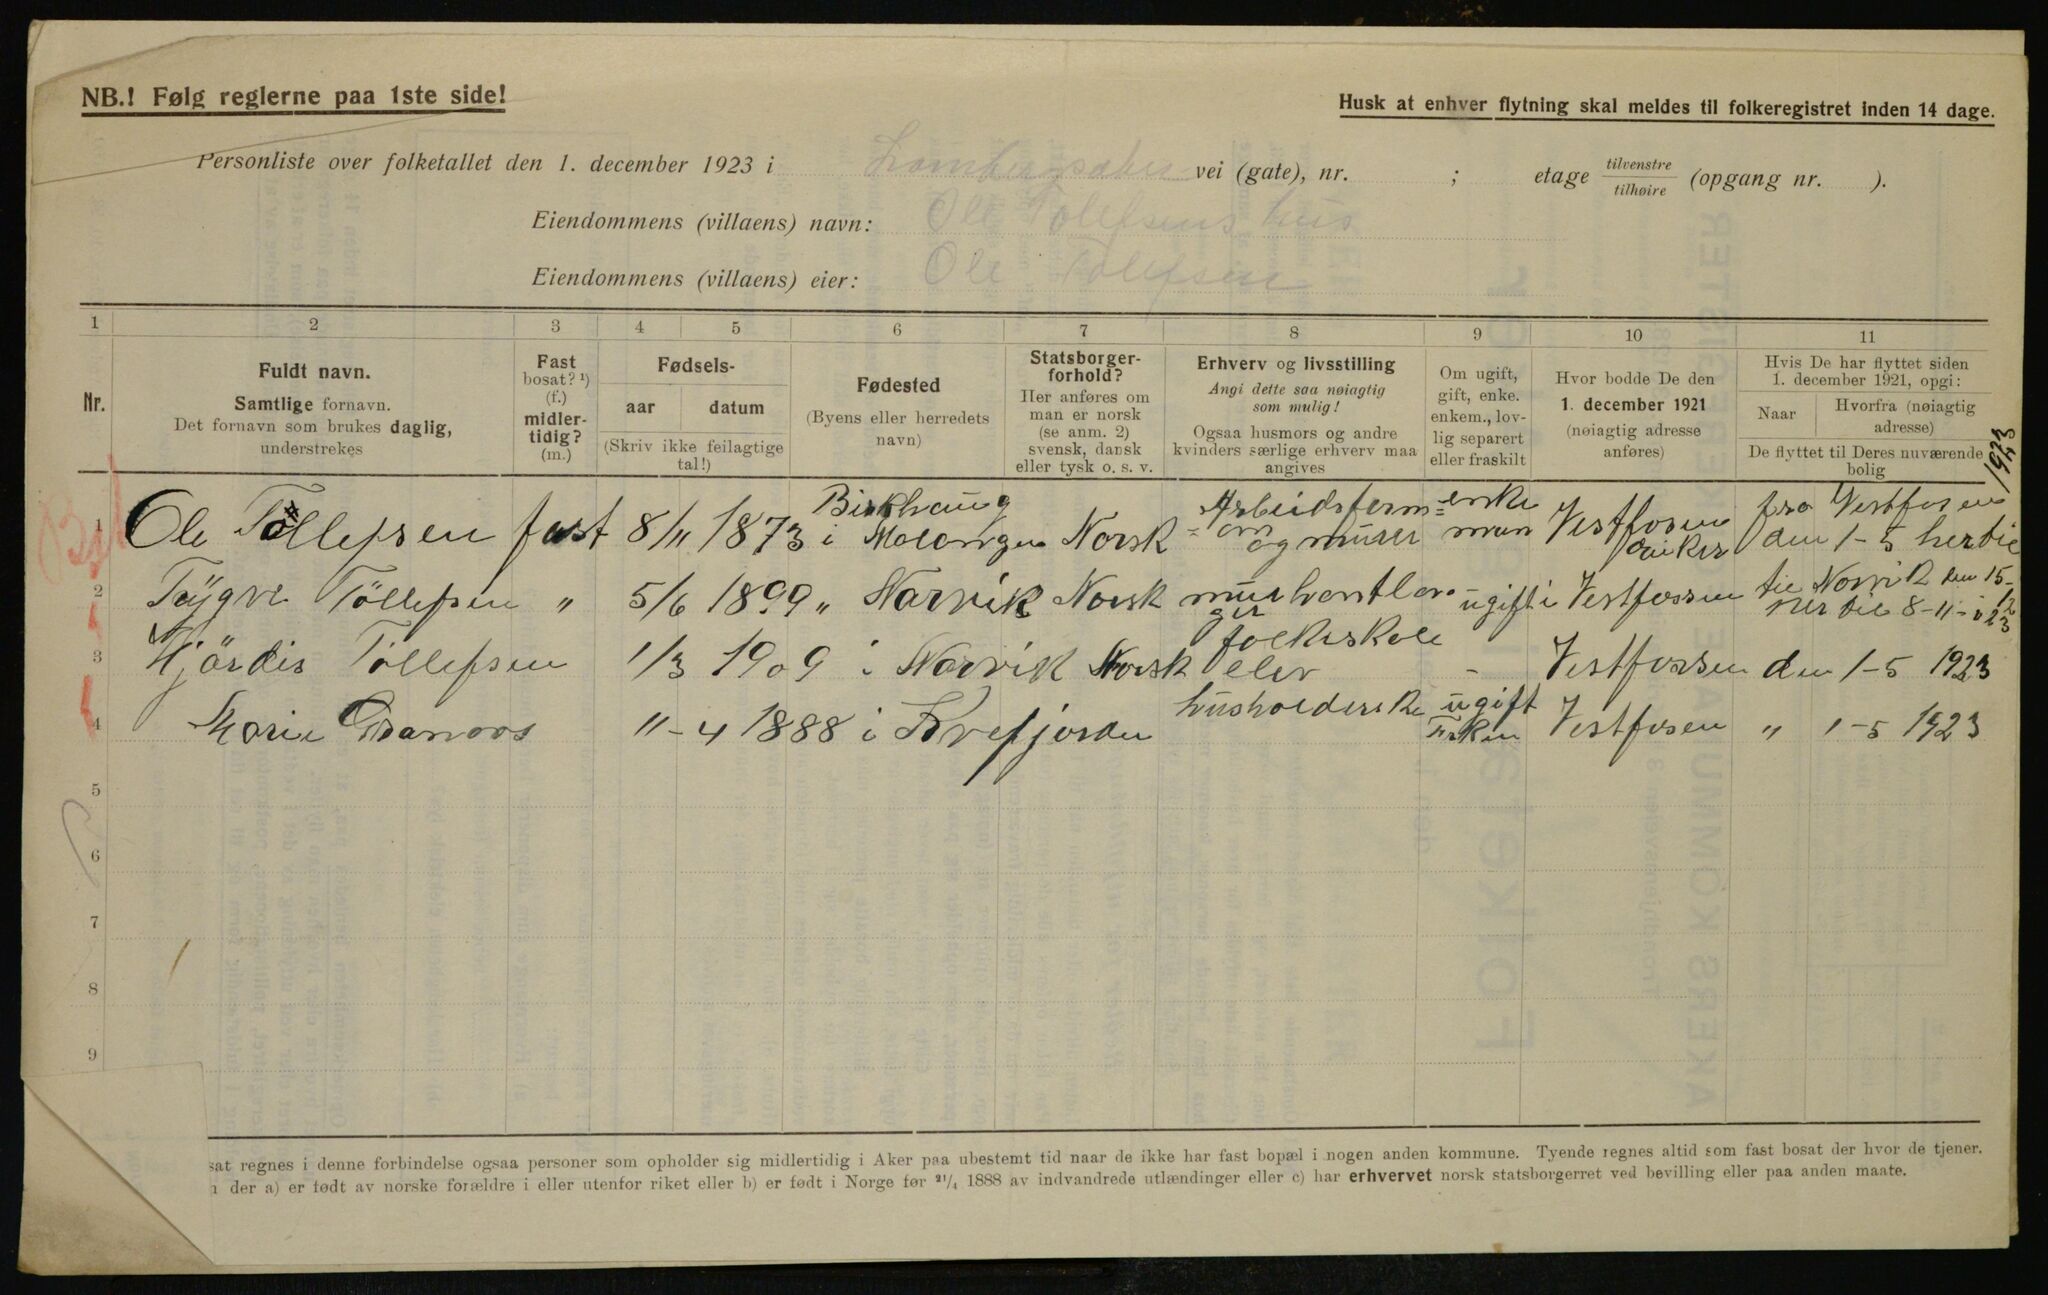 NB.! Følg reglerne paa 1ste side!
Husk at enhver flytning skal meldes til folkeregistret inden 14 dage.
Personliste over folketallet den 1. december 1923 i vei (gate), nr. ; etage tilvenstre tilhøire (opgang nr. ).
Eiendommens (villaens) navn: Ole Tolefsens hus
Eiendommens (villaens) eier: Ole Tolefsen
1 2 3 4 5 6 7 8 9 10 11
Nr.
Fuldt navn.
Samtlige fornavn.
Det fornavn som brukes daglig,
understrekes
Fast
bosat? ¹)
(f.)
midler-
tidig?
(m.)
Fødsels-
aar datum
(Skriv ikke feilagtige
tal!)
Fødested
(Byens eller herredets
navn)
Statsborger-
forhold?
Her anføres om
man er norsk
(se anm. 2)
svensk, dansk
eller tysk o. s. v.
Erhverv og livsstilling
Angi dette saa nøiagtig
som mulig!
Ogsaa husmors og andre
kvinders særlige erhverv maa
angives
Om ugift,
gift, enke.
enkem., lov-
lig separert
eller fraskilt
Hvor bodde De den
1. december 1921
(nøiagtig adresse
anføres)
Hvis De har flyttet siden
1. december 1921, opgi:
Naar Hvorfra (nøiagtig
adresse)
De flyttet til Deres nuværende
bolig
1923
1 Ole Tollefsen fast 8/11 1873 i Malangen Norsk og murer enke=man Vestfosen fra Vestfosen den 1-5
2 Tøllefsen " 5/6 1899 " Narvik Norsk ugift i Vestfossen Narvik den 15-12 8-11-
3 Hjördis Töllefsen 1/3 1909 i Narvik Norsk folkeskole elev - Vestfossen den 1-5 1923
4 Marie 11-4 1888 i Kvefjorden husholderske ugift Frøken Vestfosen " 1-5 1923
5
6
7
8
9
sat regnes i denne forbindelse ogsaa personer som opholder sig midlertidig i Aker paa ubestemt tid naar de ikke har fast bopæl i nogen anden kommune. Tyende regnes altid som fast bosat der hvor de tjener.
der a) er født av norske forældre i eller utenfor riket eller b) er født i Norge før 21/4 1888 av indvandrede utlændinger eller c) har erhvervet norsk statsborgerret ved bevilling eller paa anden maate.